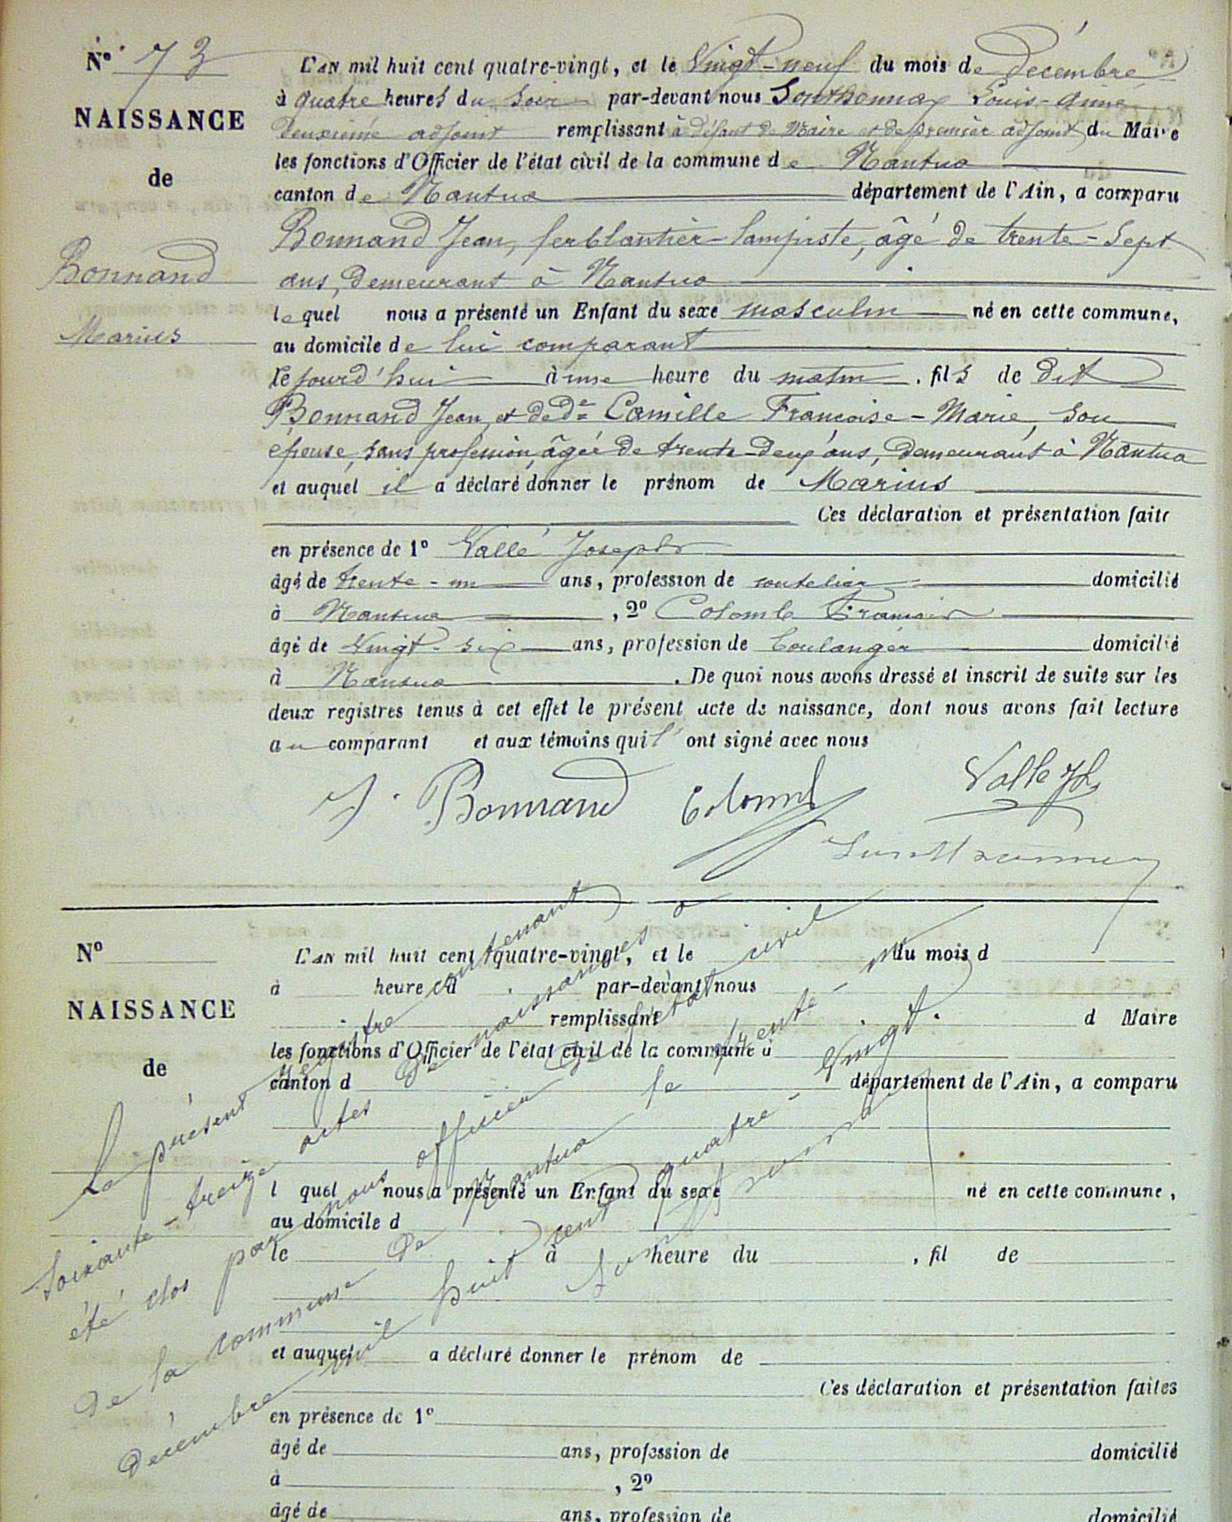 N° 73
NAISSANCE
de
Bonnand
Marius
L'AN mil huit cent quatre-vingt, et le Vingt-neuf du mois de Décembre
à quatre heures du soir par-devant nous Sonthonnax Louis-Aimé
deuxième adjoint remplissant à défaut de Maire et de premier adjoint du Maire
les fonctions d'Officier de l'état civil de la commune de Nantua
canton de Nantua département de l'Ain, a comparu
Bonnand Jean, ferblantier-lampiste, âgé de trente-sept
ans, demeurant à Nantua
lequel nous a présenté un Enfant du sexe masculin né en cette commune,
au domicile de lui comparant
le jourd'hui à une heure du matin, fils de dit
Bonnand Jean, et de De Camille Françoise-Marie, son
épouse, sans profession, âgée de trente-deux ans, demeurant à Nantua
et auquel il a déclaré donner le prénom de Marius
Ces déclaration et présentation faite
en présence de 1° Vallé Joseph
âgé de trente-un ans, profession de coutelier domicilié
à Nantua, 2° Colomb François
âgé de Vingt-six ans, profession de boulanger domicilié
à Nantua. De quoi nous avons dressé et inscrit de suite sur les
deux registres tenus à cet effet le présent acte de naissance, dont nous avons fait lecture
au comparant et aux témoins qui l'ont signé avec nous
J. Bonnand Colomb Vallé Jh
Sonthonnax
N°
NAISSANCE
de
L'AN mil huit cent quatre-vingt, et le du mois d
à heure d par-devant nous
remplissant d Maire
les fonctions d'Officier de l'état civil de la commune d
canton d département de l'Ain, a comparu
l quel nous a présenté un Enfant du sexe né en cette commune,
au domicile d
le à heure du , fil de
et auquel a déclaré donner le prénom de
Ces déclaration et présentation faites
en présence de 1°
âgé de ans, profession de domicilié
à , 2°
âgé de ans, profession de domicilié
Le présent registre contenant
soixante-treize actes de naissances a
été clos par nous officier de l'état civil
de la commune de Nantua le trente-un
décembre mil huit cent quatre-vingt.
Sonthonnax